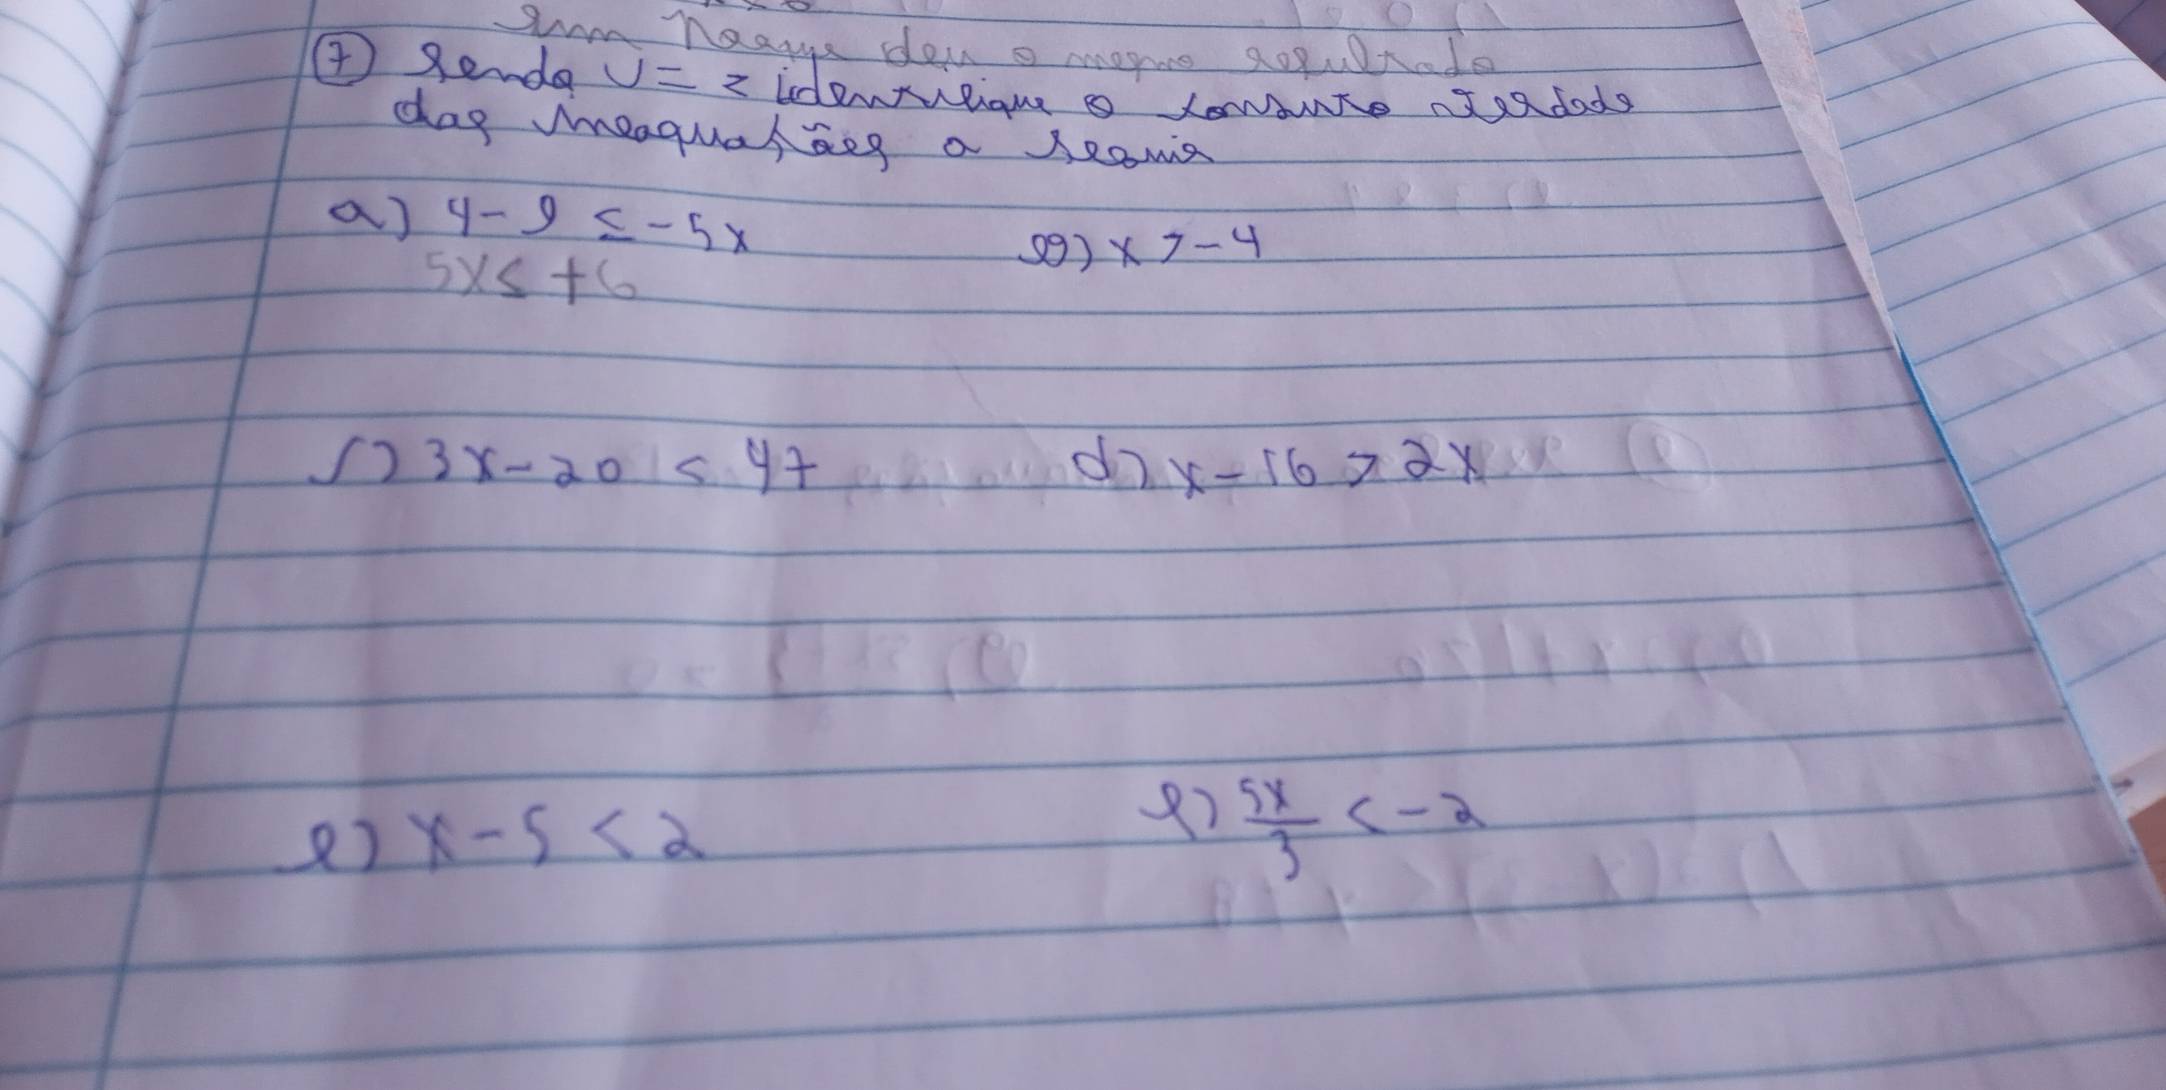 sim Porque deu o mesmo resultado
7 Sendo U = Z identifique o conjunto verdade
das inequações a seguir
a) 4 - 9 ≤ - 5x
b) x > - 4
5x ≤ + 6
c) 3x - 20 < 47
d) x - 16 > 2x
e) x - 5 < 2
f) 5x/3 < - 2